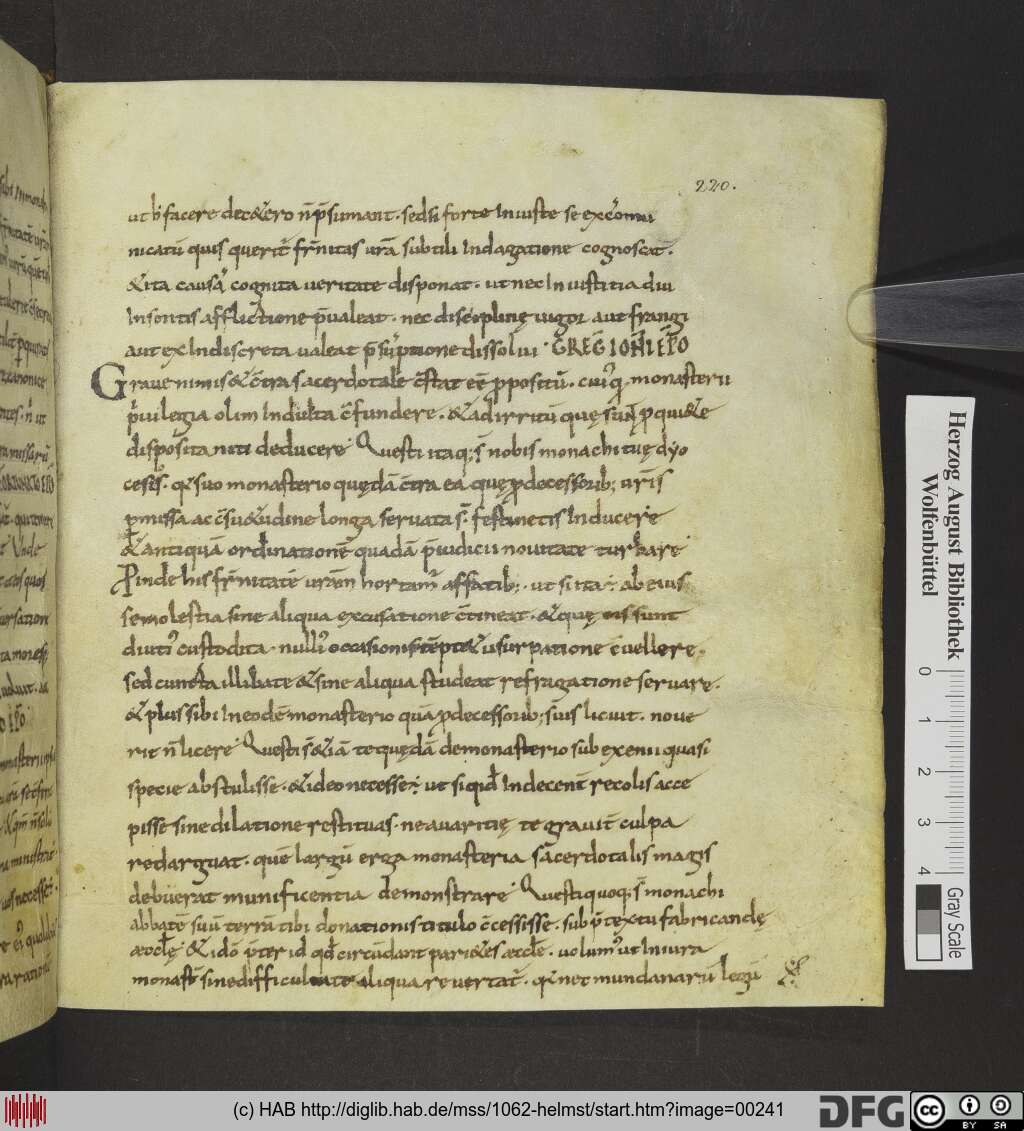 220.
ut b̄ facere decetero n̄ p̄sumant. sed si forte Iniuste se excōmu
nicatū quis querit̄ fr̄nitas urā subtili Indagatione cognoscat.
& ita causa cognita ueritate disponat. ut nec Iniustitia diu
Insontis afflictione p̄ualeat. nec disciplinę uigor aut frangi
aut ex Indiscreta ualeat p̄sūptione dissolui GREG IOĦI EP̄O
Graue nimis & c̄tra sacerdotale c̄stat eē p̄positū. cuiq monasterii
p̄uilegia olim Indulta c̄fundere. & ad irritū quę sunt p qui&e
disposita niti deducere Questi itaq; s̄ nobis monachi tuę dyo
cesis. qđ suo monasterio quędā c̄tra ea quę p̄decessorib; uris
p̄missa ac c̄su&udine longa seruata s̄. festinetis Inducere
& antiquā ordinationē quadā p̄iudicii nouitate turbare
Pinde his fr̄nitatē urām hortam̄ affatib;. ut si ita ÷ ab eius
se molestia sine aliqua excusatione c̄tineat. & quę eis sunt
diuti custodita. nulli occasionis usurpatione c̄uellere.
sed cuncta illibate & sine aliqua studeat refragatione seruare.
& plus sibi In eodē monasterio quā p̄decessorib; suis licuit. noue
rit n̄ licere Questi s̄ &iā te quędā de monasterio sub exenii quasi
specie abstulisse. & ideo necesse ÷ ut si qđ Indecent̄ recolis acce
pisse sine dilatione restituas. ne auaritię te grauit̄ culpa
redarguat. quē largū erga monasteria sacerdotalis magis
debuerat munificentia demonstrare Questi quoq; s̄ monachi
abbatē suū terrā tibi donationis titulo c̄cessisse. sub p̄textu fabricandę
æcclę & idō p̄ter id qđ circūdant pari&es æcclę. uolum̄ ut In iura
monast̄ sine difficultate aliqua reuertat̄. qđ net mundanarū legū
Herzog August Bibliothek
Wolfenbüttel
0 1 2 3 4
Gray Scale
(c) HAB http://diglib.hab.de/mss/1062-helmst/start.htm?image=00241
DFG
cc BY SA